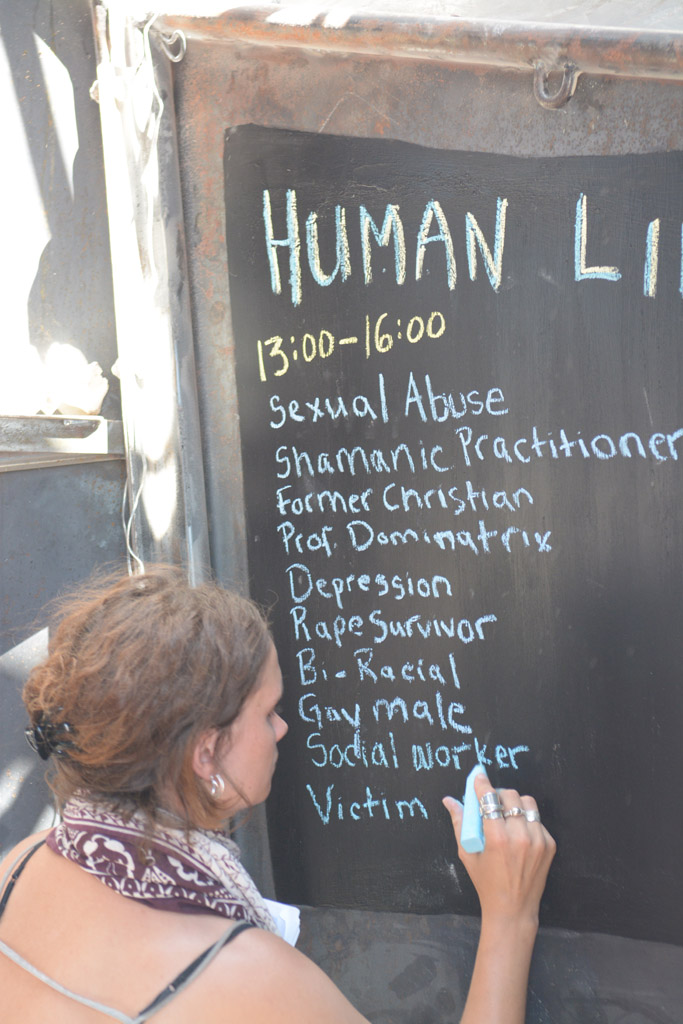 HUMAN LI
13:00-16:00
Sexual Abuse
Shamanic Practitioner
Former Christian
Prof. Dominatrix
Depression
Rape Survivor
Bi-Racial
Gay male
Social worker
Victim